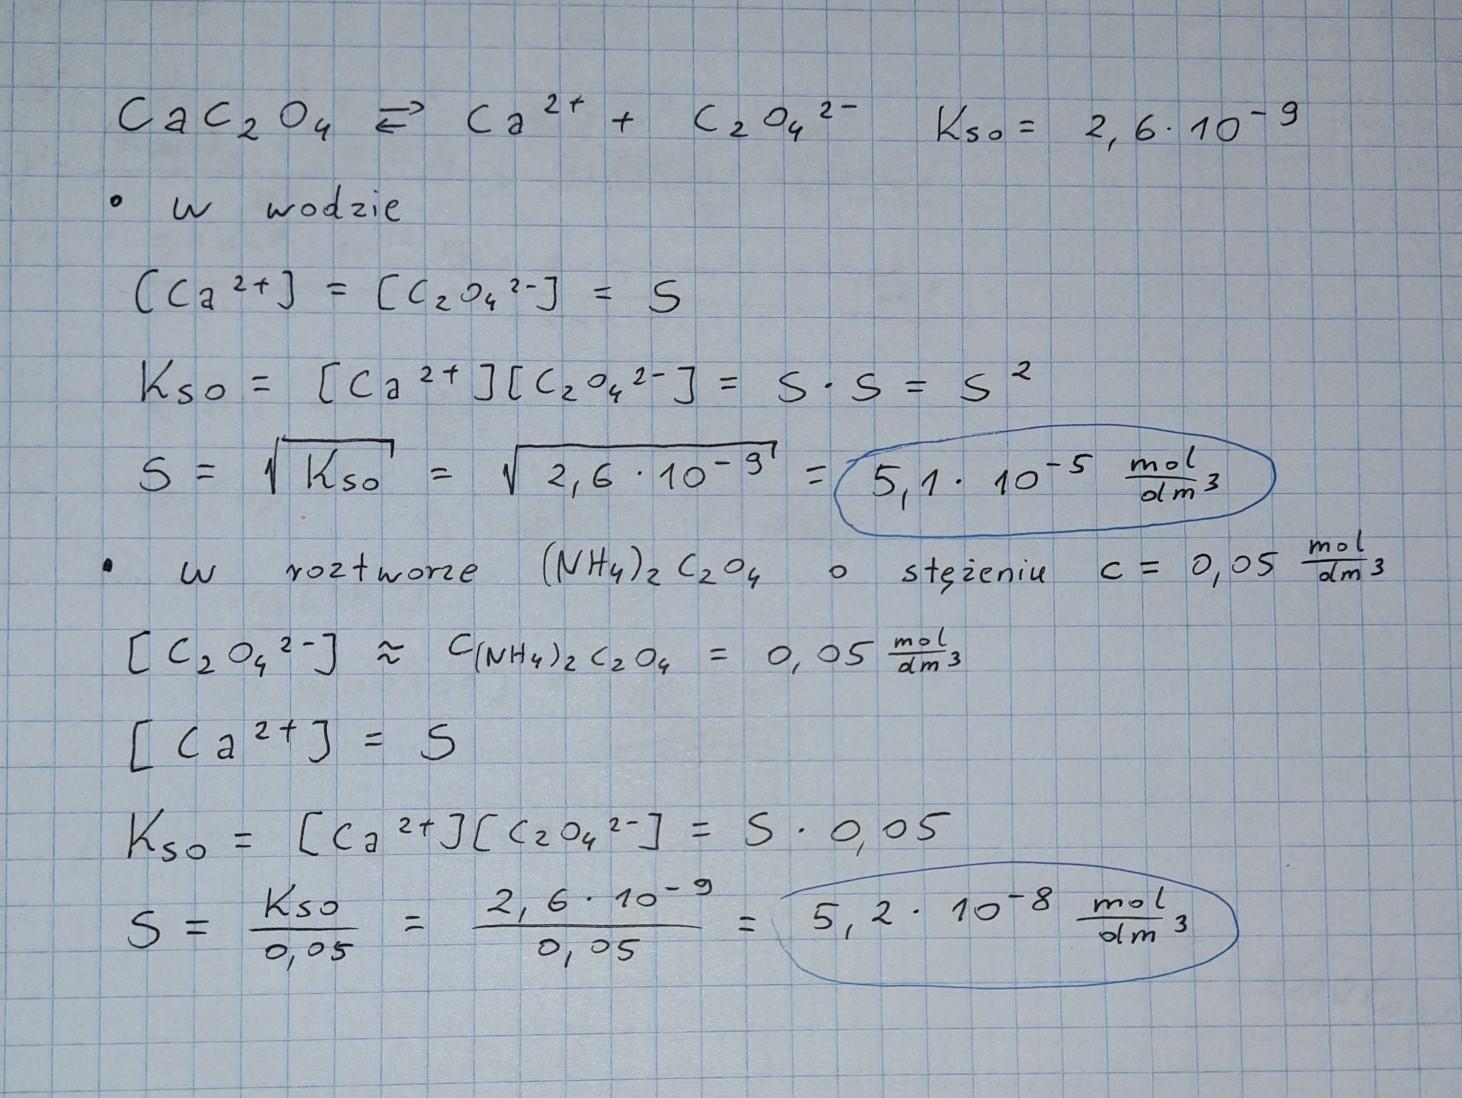 CaC₂O₄ ⇄ Ca²⁺ + C₂O₄²⁻ Kso = 2,6·10⁻⁹
• w wodzie
[Ca²⁺] = [C₂O₄²⁻] = S
Kso = [Ca²⁺][C₂O₄²⁻] = S·S = S²
S = √Kso = √2,6·10⁻⁹ = 5,1·10⁻⁵ mol/dm³
• w roztworze (NH₄)₂C₂O₄ o stężeniu c = 0,05 mol/dm³
[C₂O₄²⁻] ≈ C(NH₄)₂C₂O₄ = 0,05 mol/dm³
[Ca²⁺] = S
Kso = [Ca²⁺][C₂O₄²⁻] = S·0,05
S = Kso/0,05 = 2,6·10⁻⁹/0,05 = 5,2·10⁻⁸ mol/dm³